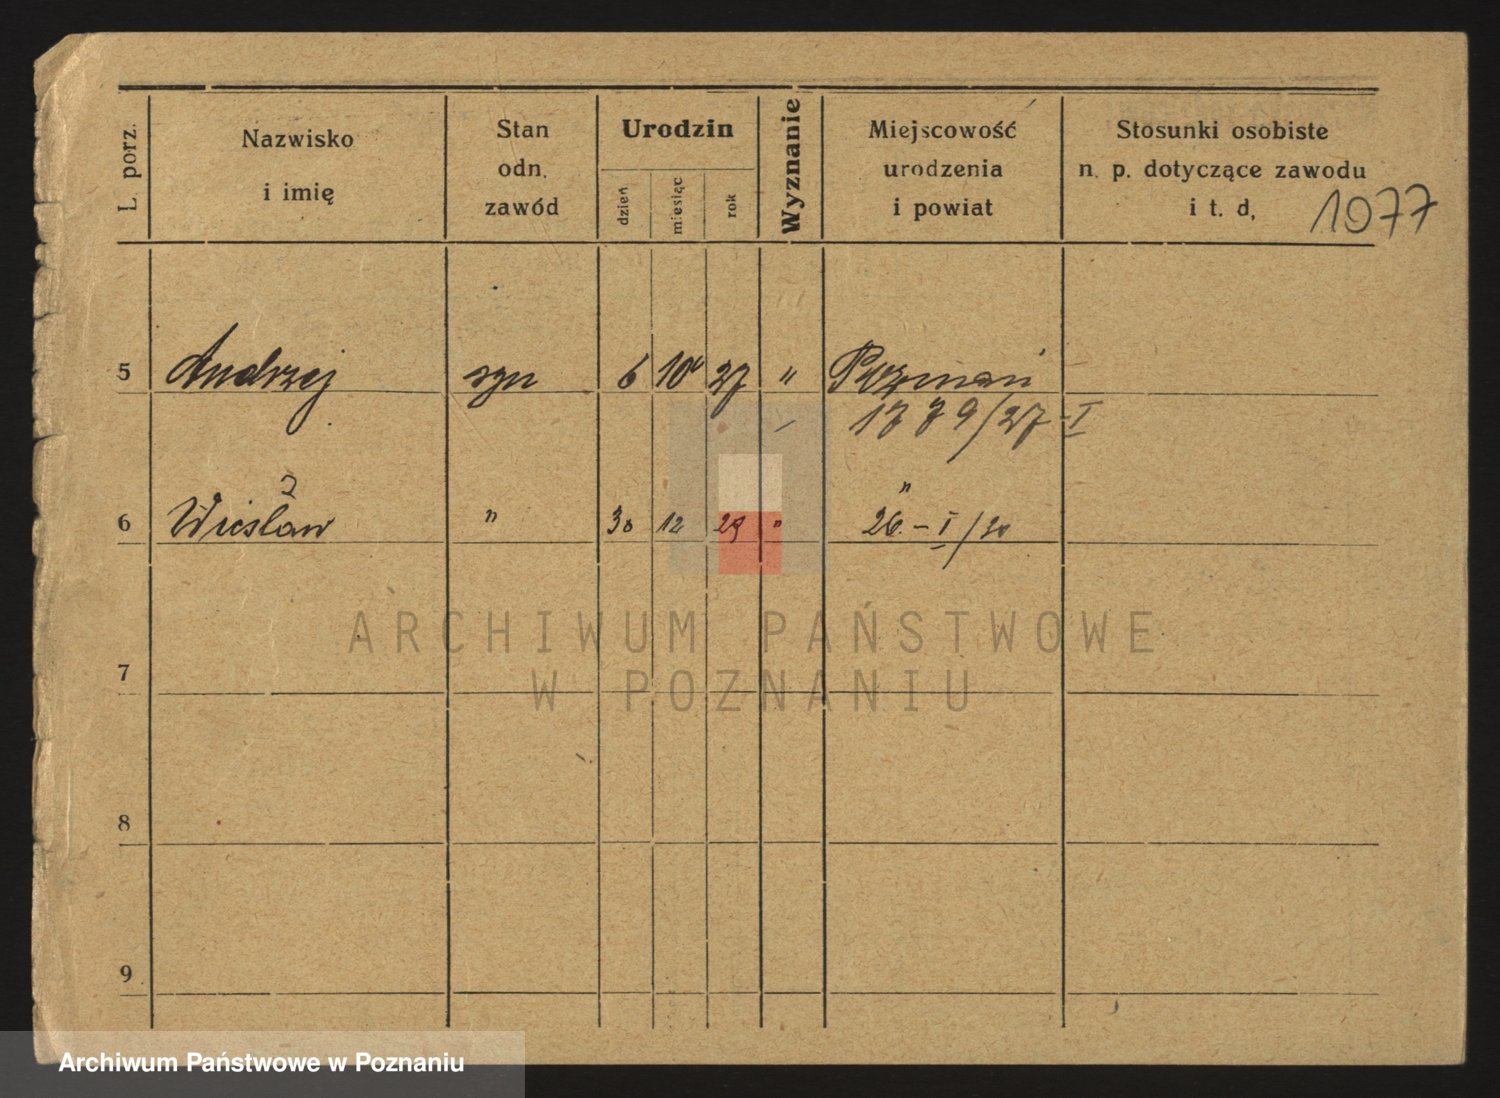 L. porz.
Nazwisko
i imię
Stan
odn.
zawód
Urodzin
dzień
miesiąc
rok
Wyznanie
Miejscowość
urodzenia
i powiat
Stosunki osobiste
n. p. dotyczące zawodu
i t. d,
1077
5 Andrzej syn 6 10 27 " Poznań
1779/27-I
6 Wiesław " 30 12 29 " "
26.-I/30
ARCHIWUM PAŃSTWOWE
W POZNANIU
7
8
9
Archiwum Państwowe w Poznaniu